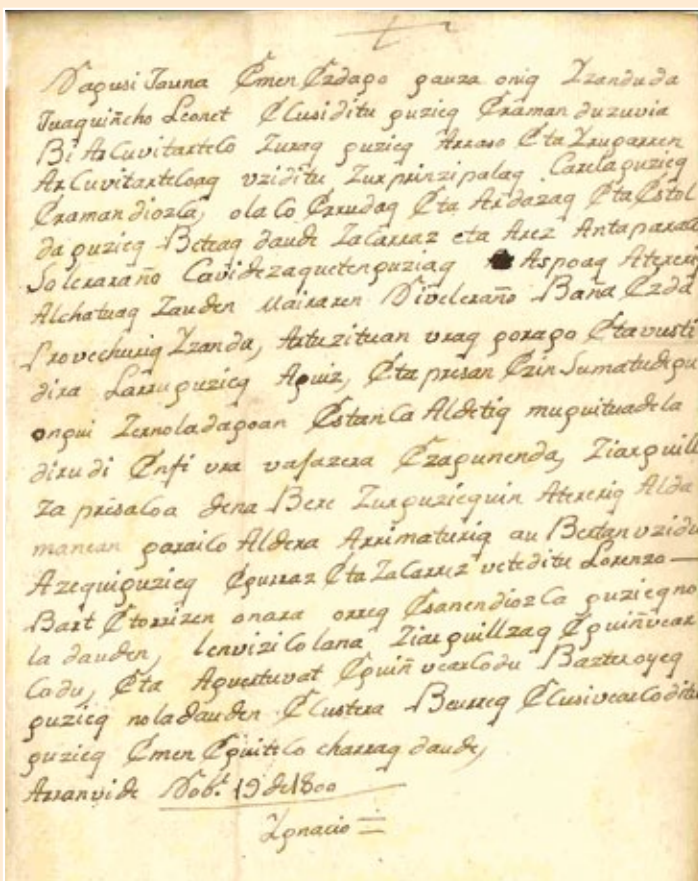 Nagusi Jauna Emen Ezdago gauza onig Yzandu da
Juaquiñcho Leonet Elusiditu guzieg Eraman duzuvia
Bi Arcuvitarteco Zurag guzieg Arraso Eta Yrugarren
Arcuvitartecoag vziditu Zur prinzipalag Carelaguzieg
Eraman diozca, olaco Errudag Eta Ardazag Eta Estol
da guzieg Beteag daude Zacarraz eta Arez Antaparat
Soleraraño Cavidezaquetenguziag Aspoag Atererig
Alchatuag Zauden Mairaren Niveleraño Baña Ezda
Provechurig Yzandu, Artuzituan vrag gorago Eta vusti
dira Larruguzieg Aguiz, Eta presan Ezin Sumatudegu
ongui Zernoladagoan Estanca Aldetig muguituadela
dirudi Enfi vra vajazera Ezagunenda, Ziarguill
za presacoa dena Bere Zurguziequin Atererig Alda
manean garaico Aldera Arrimaturig au Bertan vzidu
Azequiguzieg Egurraz Eta Zacarrez veteditu Lorenzo —
Bart Etorrizen onara orreg Esanendiozca guziegno
la dauden, lenvizicolana Ziarguillzag Eguiñvear
Codu, Eta Aguertuvat Eguiñ vearcodu Bazteroyeg
guzieg noladauden Elustera Beurreg Elusivearcoditu
guzieg Emen Eguiteco charrag daude,
Arranvide Nobe. 19 de 1800
Ygnacio =